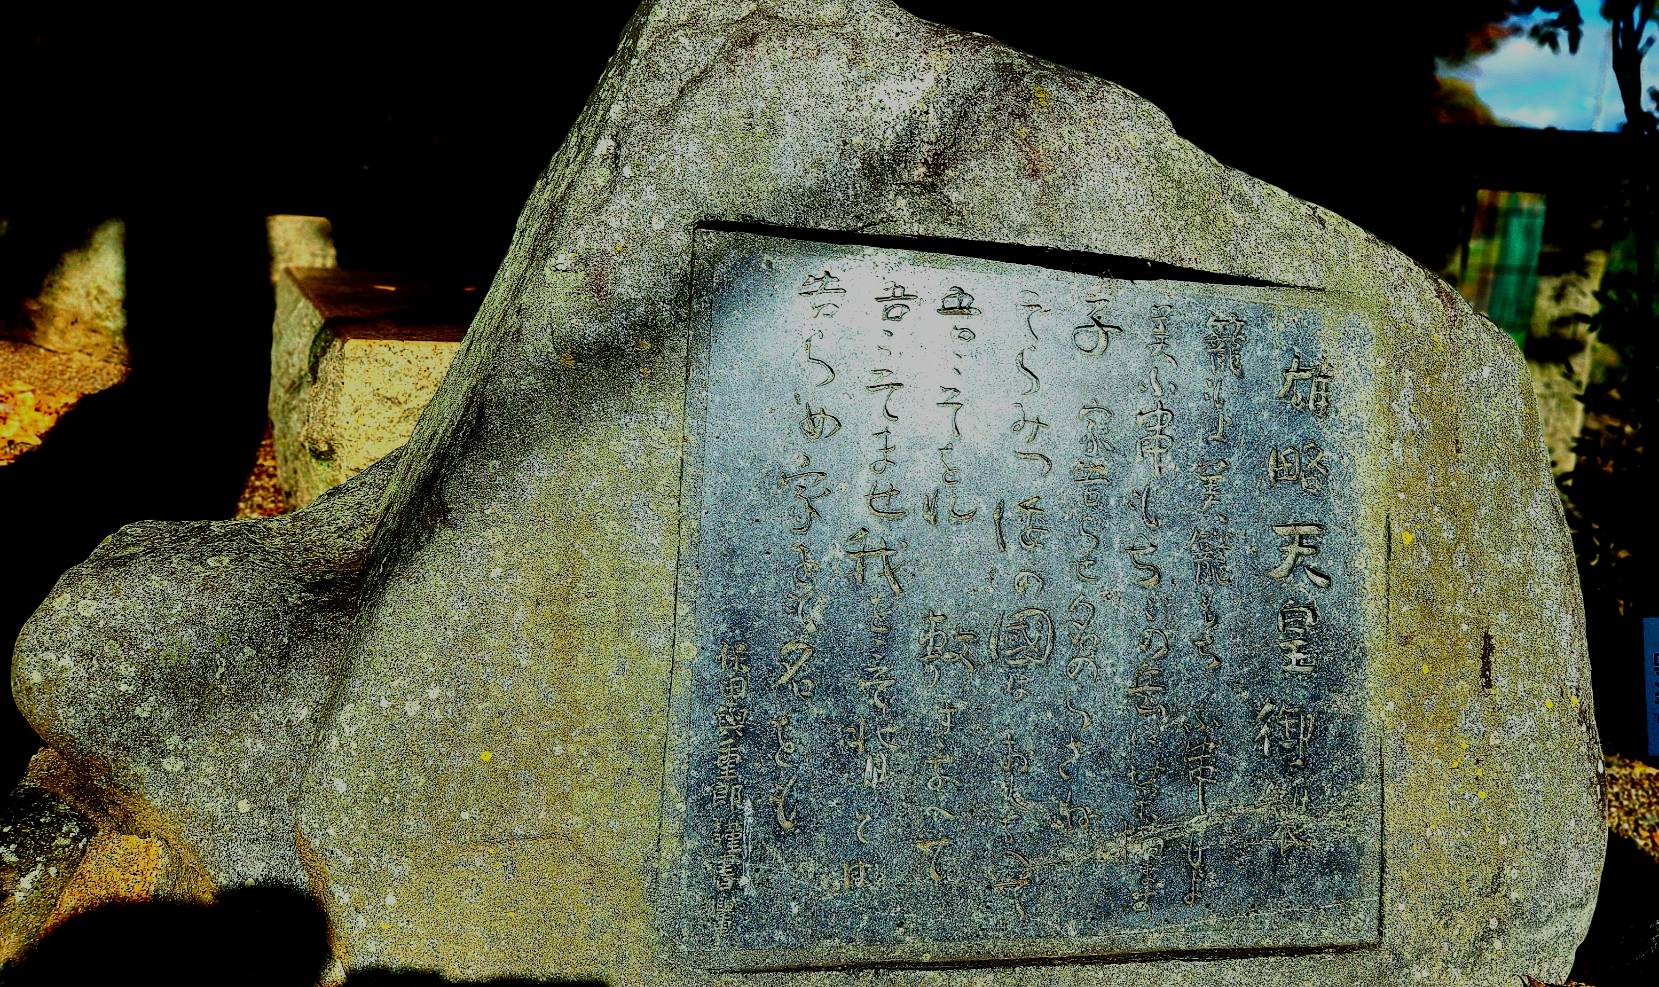 雄略天皇御製
籠もよ 美籠もち ふ串もよ
美ふ串もち この岳に 菜つます
子 家告らせ 名のらさね
そらみつ 倭の國は おしなべて
吾こそをれ 敷きなへて
吾こそませ 我をこそ 背とは
告らめ 家をも 名をも
保田與重郎